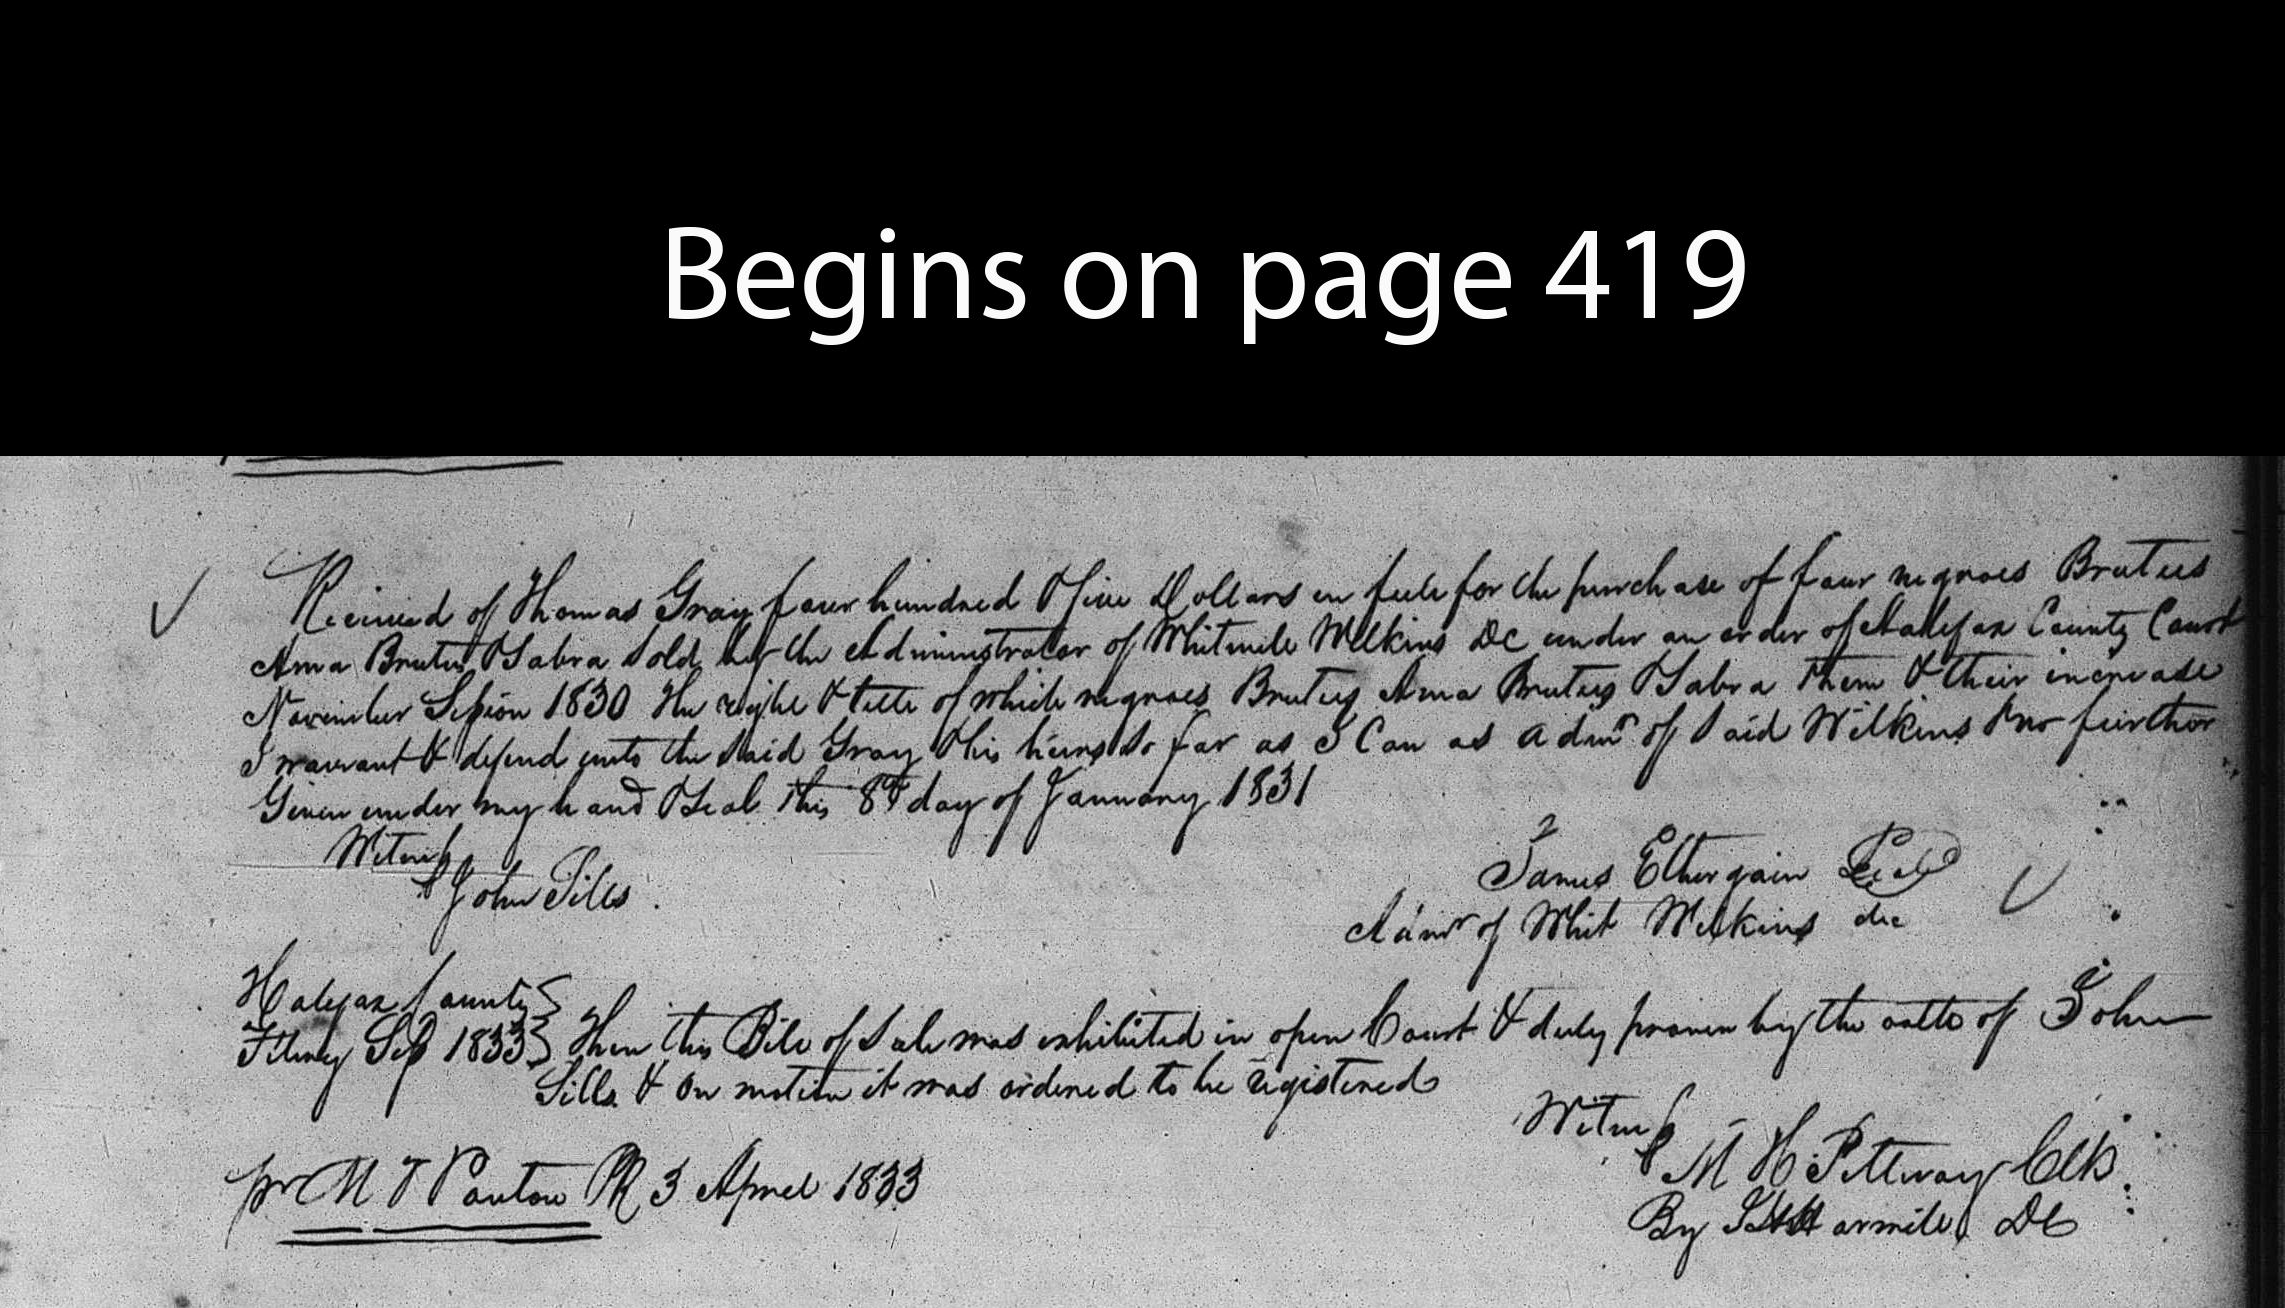 Begins on page 419
Received of Thomas Gray four hundred & five Dollars in full for the purchase of four negroes Brutus
Ama Brutus & Sabra Sold by the Administrator of Whitmile Wilkins Dc under an order of Halifax County Court
November Session 1830 The right & title of which negroes Brutus Ama Brutus & Sabra them & their increase
I warrant & defend unto the Said Gray & his heirs So far as I Can as Admr of Said Wilkins & no further
Given under my hand & Seal this 8th day of January 1831
Witness
John Sills.
James Ethergain Seal
Admr of Whit Wilkins dec
Halifax County
Feby Ses 1833 Then this Bile of Sale was exhibited in open Court & duly proven by the oath of John
Sills & On motion it was ordered to be registered
Witness
M H Pettway Clk
pr M T Ponton PR 3 April 1833
By DC